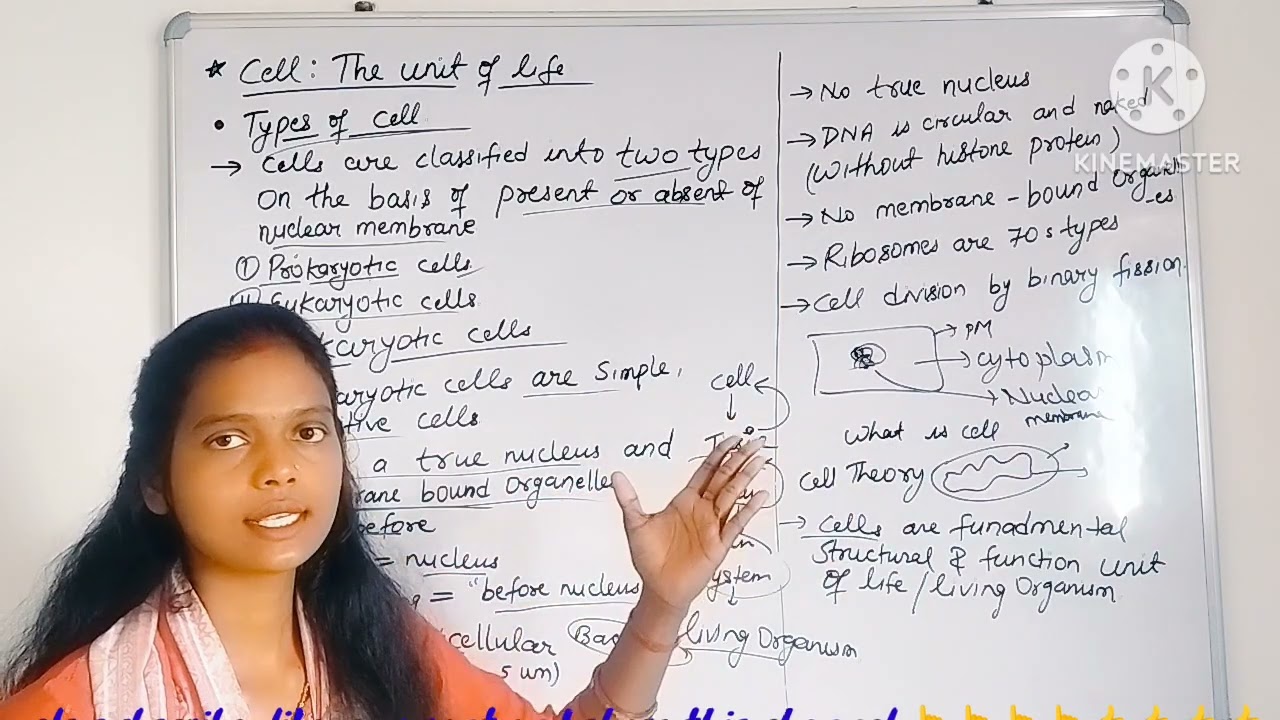 * Cell: The unit of life
• Types of cell
→ Cells are classified into two types
on the basis of present or absent of
nuclear membrane
① Prokaryotic cells
Eukaryotic cells
karyotic cells
aryotic cells are simple,
tive cells
a true nucleus and
rane bound Organelle
before
= nucleus
= "before nucleus
icellular
5 um)
cell
↓
ystem
↓
living Organism
→ No true nucleus
→ DNA is circular and naked
(without histone protein)
→ No membrane-bound Organell
-es
→ Ribosomes are 70s types
→ Cell division by binary fission.
→ PM
→ cytoplasm
→ Nuclear
membrane
What is cell
Cell Theory
→ Cells are funadmental
structural & function unit
of life/living Organism
K
KINEMASTER